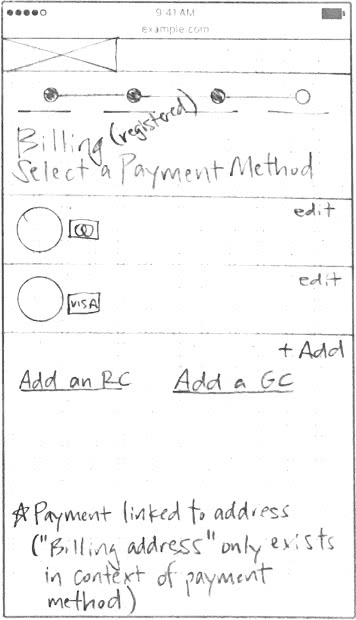 9:41 AM
example.com
Billing (registered)
Select a Payment Method
edit
edit
VISA
+ Add
Add an RC Add a GC
☆ Payment linked to address
("Billing address" only exists
in context of payment
method)